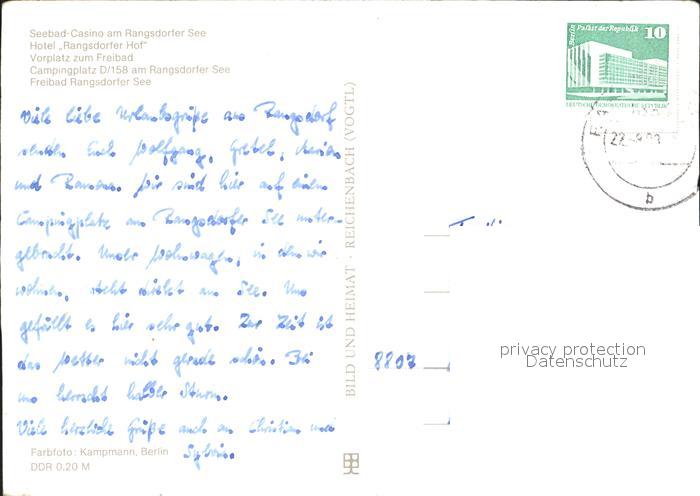 Seebad-Casino am Rangsdorfer See
Hotel „Rangsdorfer Hof"
Vorplatz zum Freibad
Campingplatz D/158 am Rangsdorfer See
Freibad Rangsdorfer See
Viele liebe Urlaubsgrüße aus Rangsdorf
senden Euch Wolfgang, Gretel, Marion
und Ramona. Wir sind hier auf einem
Campingplatz am Rangsdorfer See unter-
gebracht. Unser Wohnwagen, in dem wir
wohnen, steht direkt am See. Uns
gefällt es hier sehr gut. Zur Zeit ist
das Wetter nicht gerade schön. Bei
uns herrscht halber Sturm.
Viele herzliche Grüße auch an Christian und
Sylvia.
Farbfoto: Kampmann, Berlin
DDR 0,20 M
BILD UND HEIMAT · REICHENBACH (VOGTL)
Berlin Palast der Republik 10
DEUTSCHE DEMOKRATISCHE REPUBLIK
b
8807
privacy protection
Datenschutz